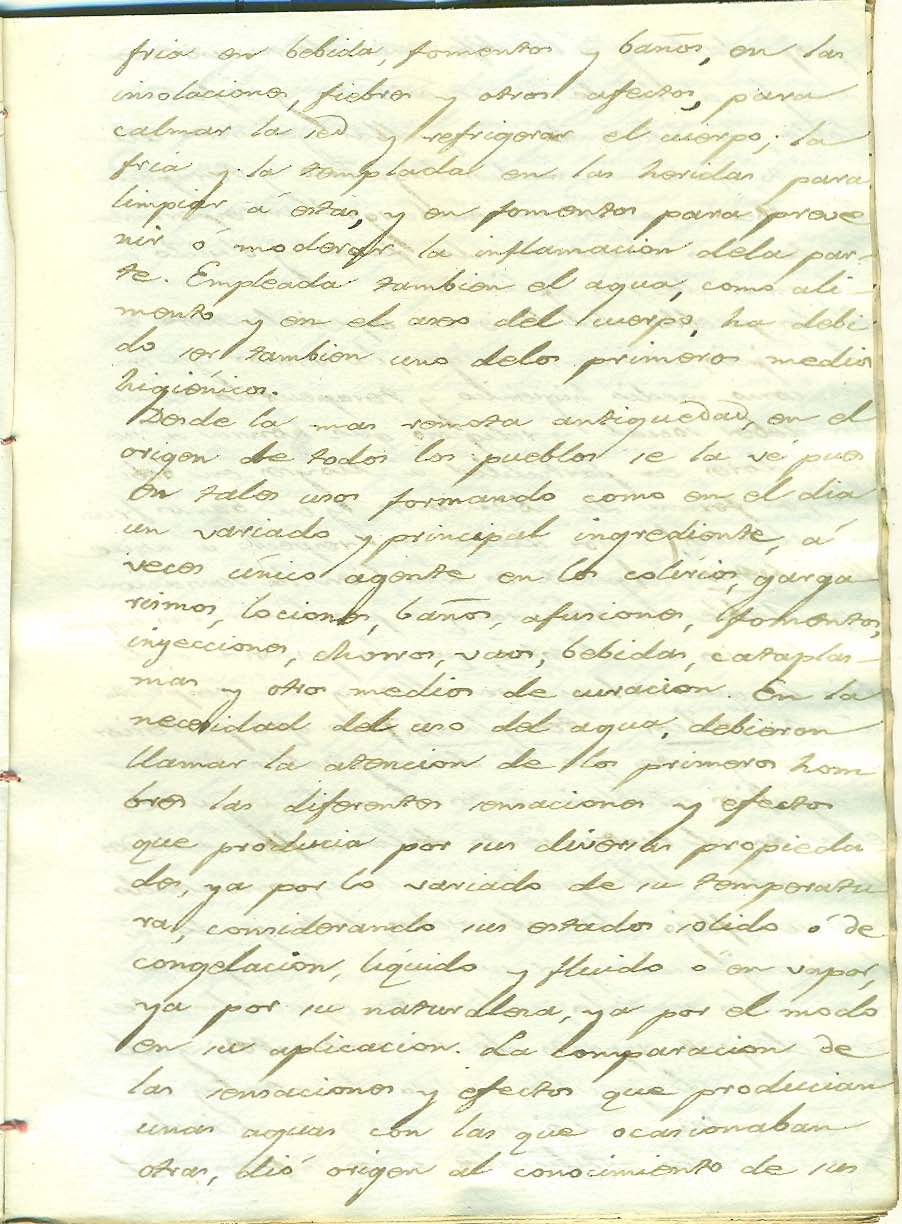 fria en bebida, fomentos y baños, en las
insolaciones, fiebres y otros afectos, para
calmar la sed y refrigerar el cuerpo; la
fria y la templada en las heridas para
limpiar á estas, y en fomentos para preve
nir ó moderar la inflamacion dela par-
te. Empleada tambien el agua, como ali-
mento y en el aseo del cuerpo, ha debi
do ser tambien uno delos primeros medios
higiénicos.
Desde la mas remota antiguedad, en el
origen de todos los pueblos se la vé pues
en tales usos formando como en el dia
un variado y principal ingrediente, á
veces único agente en los colirios, garga
rismos, lociones, baños, afusiones, fomentos,
inyecciones, chorros, vaos, bebidas, cataplas-
mas y otros medios de curacion. En la
necesidad del uso del agua, debieron
llamar la atencion de los primeros hom
bres las diferentes sensaciones y efectos
que producia por sus diversas propieda
des, ya por lo variado de su temperatu
ra, considerando sus estados solido ó de
congelacion, líquido y fluido ó en vapor,
ya por su naturaleza, ya por el modo
en su aplicacion. La comparacion de
las sensaciones y efectos que producian
unas aguas con las que ocasionaban
otras, dió origen al conocimiento de sus